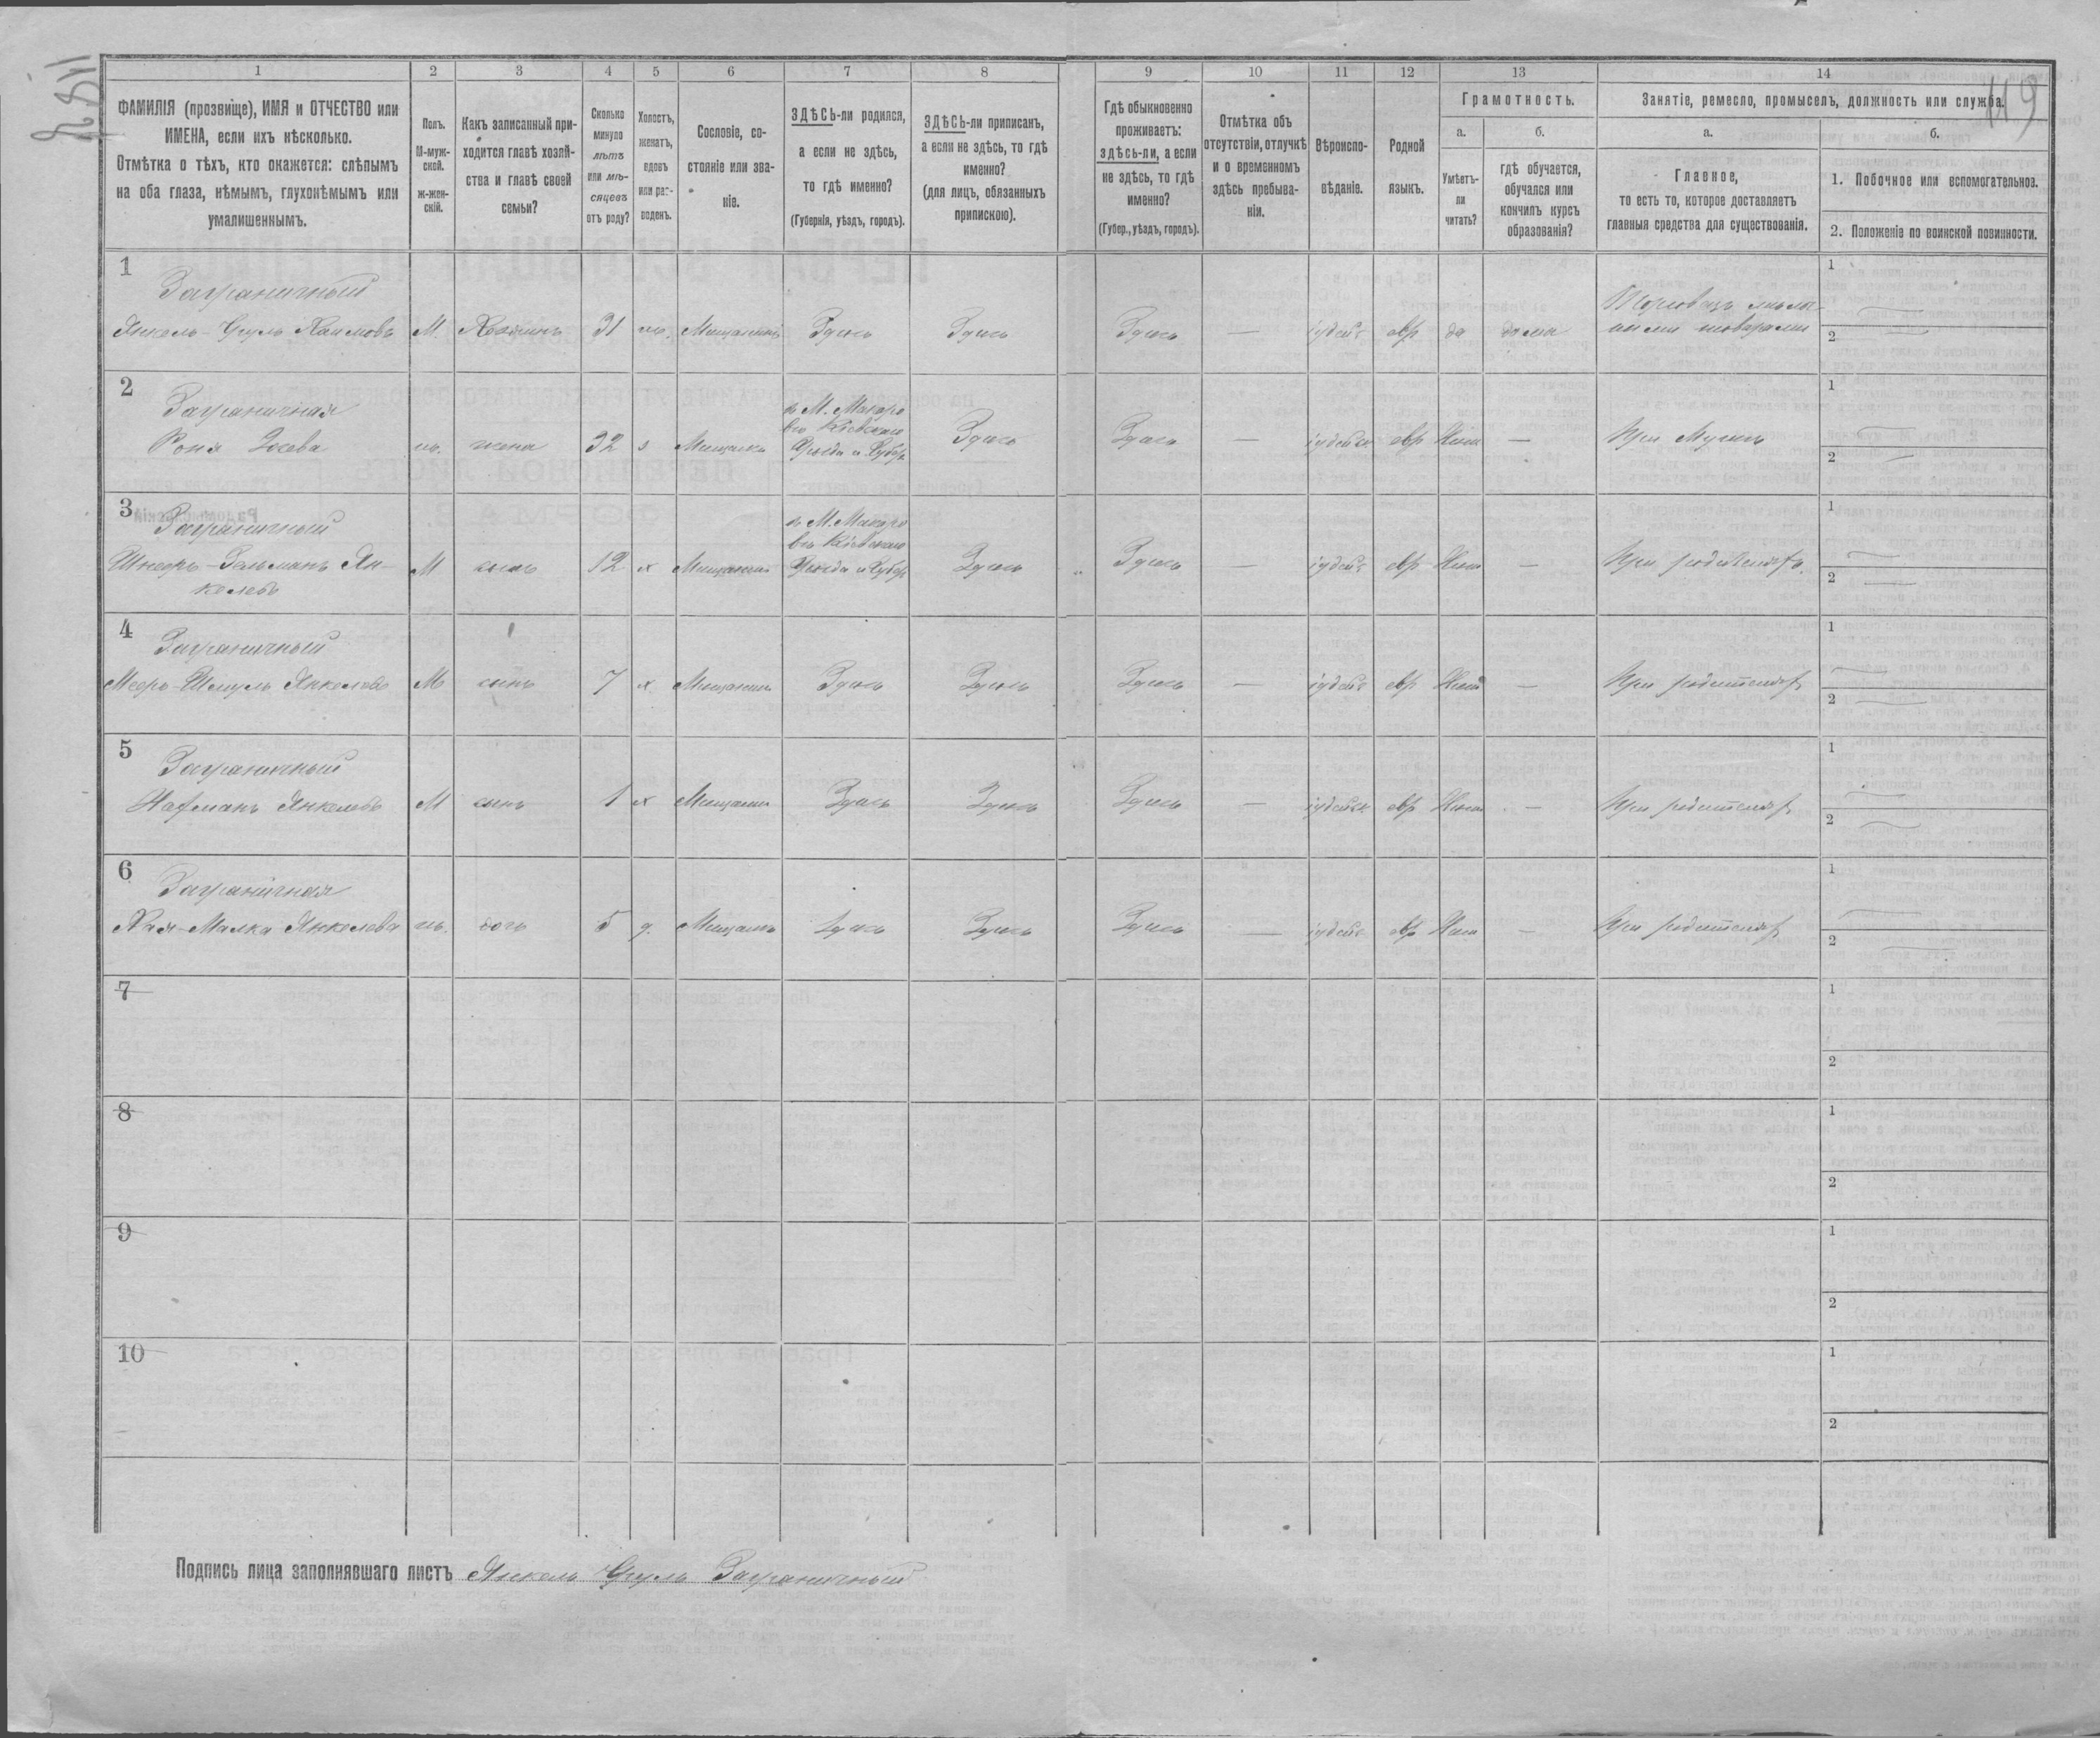 119
1
2
3
4
5
6
7
8
9
10
11
12
13
14
ФАМИЛІЯ (прозвище), ИМЯ и ОТЧЕСТВО или
ИМЕНА, если ихъ нѣсколько.
Отмѣтка о тѣхъ, кто окажется: слѣпымъ
на оба глаза, нѣмымъ, глухонѣмымъ или
умалишеннымъ.
Полъ.
М-муж-
ской.
ж-жен-
скій.
Какъ записанный при-
ходится главѣ хозяй-
ства и главѣ своей
семьи?
Сколько
минуло
лѣтъ
или мѣ-
сяцевъ
отъ роду?
Холостъ,
женатъ,
вдовъ
или раз-
веденъ.
Сословіе, со-
стояніе или зва-
ніе.
ЗДѢСЬ-ли родился,
а если не здѣсь,
то гдѣ именно?
(Губернія, уѣздъ, городъ).
ЗДѢСЬ-ли приписанъ,
а если не здѣсь, то гдѣ
именно?
(для лицъ, обязанныхъ
припискою).
Гдѣ обыкновенно
проживаетъ:
здѣсь-ли, а если
не здѣсь, то гдѣ
именно?
(Губер., уѣздъ, городъ).
Отмѣтка объ
отсутствіи, отлучкѣ
и о временномъ
здѣсь пребыва-
ніи.
Вѣроиспо-
вѣданіе.
Родной
языкъ.
Грамотность.
а.
Умѣетъ-
ли
читать?
б.
гдѣ обучается,
обучался или
кончилъ курсъ
образованія?
Занятіе, ремесло, промыселъ, должность или служба.
а.
Главное,
то есть то, которое доставляетъ
главныя средства для существованія.
б.
1. Побочное или вспомогательное.
2. Положеніе по воинской повинности.
1
Заграничный
Янкель-Сруль Хаимовъ М. Хозяинъ 31 ж. Мещанинъ Здесь Здесь Здесь — іудейс евр да дома Торговецъ
ными товарами
1
2
2
Заграничная
Роня Іосева ж. жена 32 з Мещанка
въ М. Макаро
вѣ Кіевскаго
Уезда и Губер. Здесь Здесь — іудейск евр Нет — При Мужѣ
1
2
3
Заграничный
Шнеръ-Зельманъ Ян-
келевъ М сынъ 12 х Мещанин
въ М. Макаро
вѣ Кіевскаго
Уезда и Губер Здесь Здесь — іудейс евр Нет — При родителях.
1
2
4
Заграничный
Меер-Шмуль Янкелевъ М сынъ 7 х Мещанин Здесь Здесь Здесь — іудейс евр Нет — При родителях
1
2
5
Заграничный
Нахманъ Янкелевъ М сынъ 1 х Мещанин Здесь Здесь Здесь — іудейск евр Нет — При родителях
1
2
6
Заграничная
Хая-Малка Янкелева ж. дочь 5 д. Мещанка Здесь Здесь Здесь — іудейс евр Нет — При родителях
1
2
7
1
2
8
1
2
9
1
2
10
1
2
Подпись лица заполнявшаго листъ Янкель Сруль Заграничный